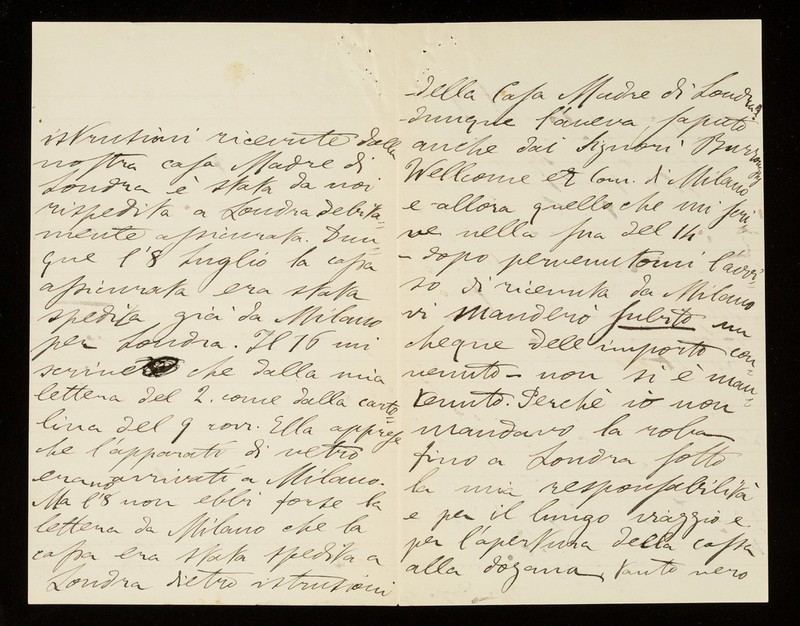 istrusioni ricevute dalla
nostra casa Madre di
Londra è stata da noi
rispedita a Londra debita=
mente assicurata. Dun=
que l'8 Luglio la cassa
assicurata era stata
spedita già da Milano
per Londra. Il 16 mi
scrive che dalla mia
lettera del 2. come dalla carto=
lina del 9 corr. Ella apprese
che l'apparati di vetro
erano arrivati a Milano.
Ma l'8 non ebbi forse la
lettera da Milano che la
cassa era stata spedita a
Londra dietro istrusioni
della Casa Madre di Londra?
dunque l'aveva saputo
anche dai Signori Burroughs
Wellcome et Com. di Milano
e allora quello che mi scri=
ve nella sua del 14
- dopo pervenutomi l'avvi=
so di ricevuta da Milano
vi manderò subito un
cheque dell'importo con=
venuto - non si è man=
tenuto. Perchè io non
mandavo la roba
fino a Londra sotto
la mia responsabilità
e per il lungo viaggio e
per l'apertura della cassa
alla dogana, tanto vero